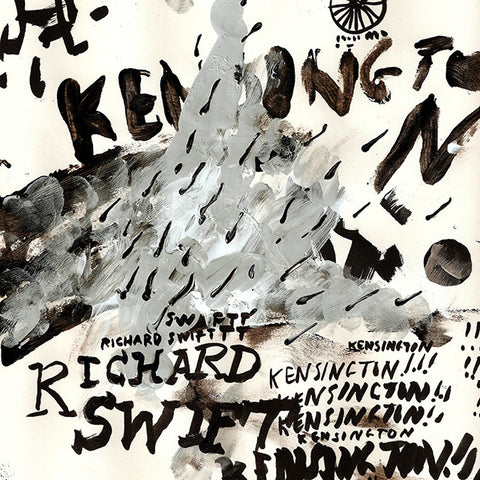 KENSINGTO
N
SWIFTT
RICHARD SWIFTTT
RICHARD
SWIFT
KENSINGTON
KENSINGTON!!!
KENSINGTON!!
KENSINGTON!!
KENSINGTON
KENSINGTON!!